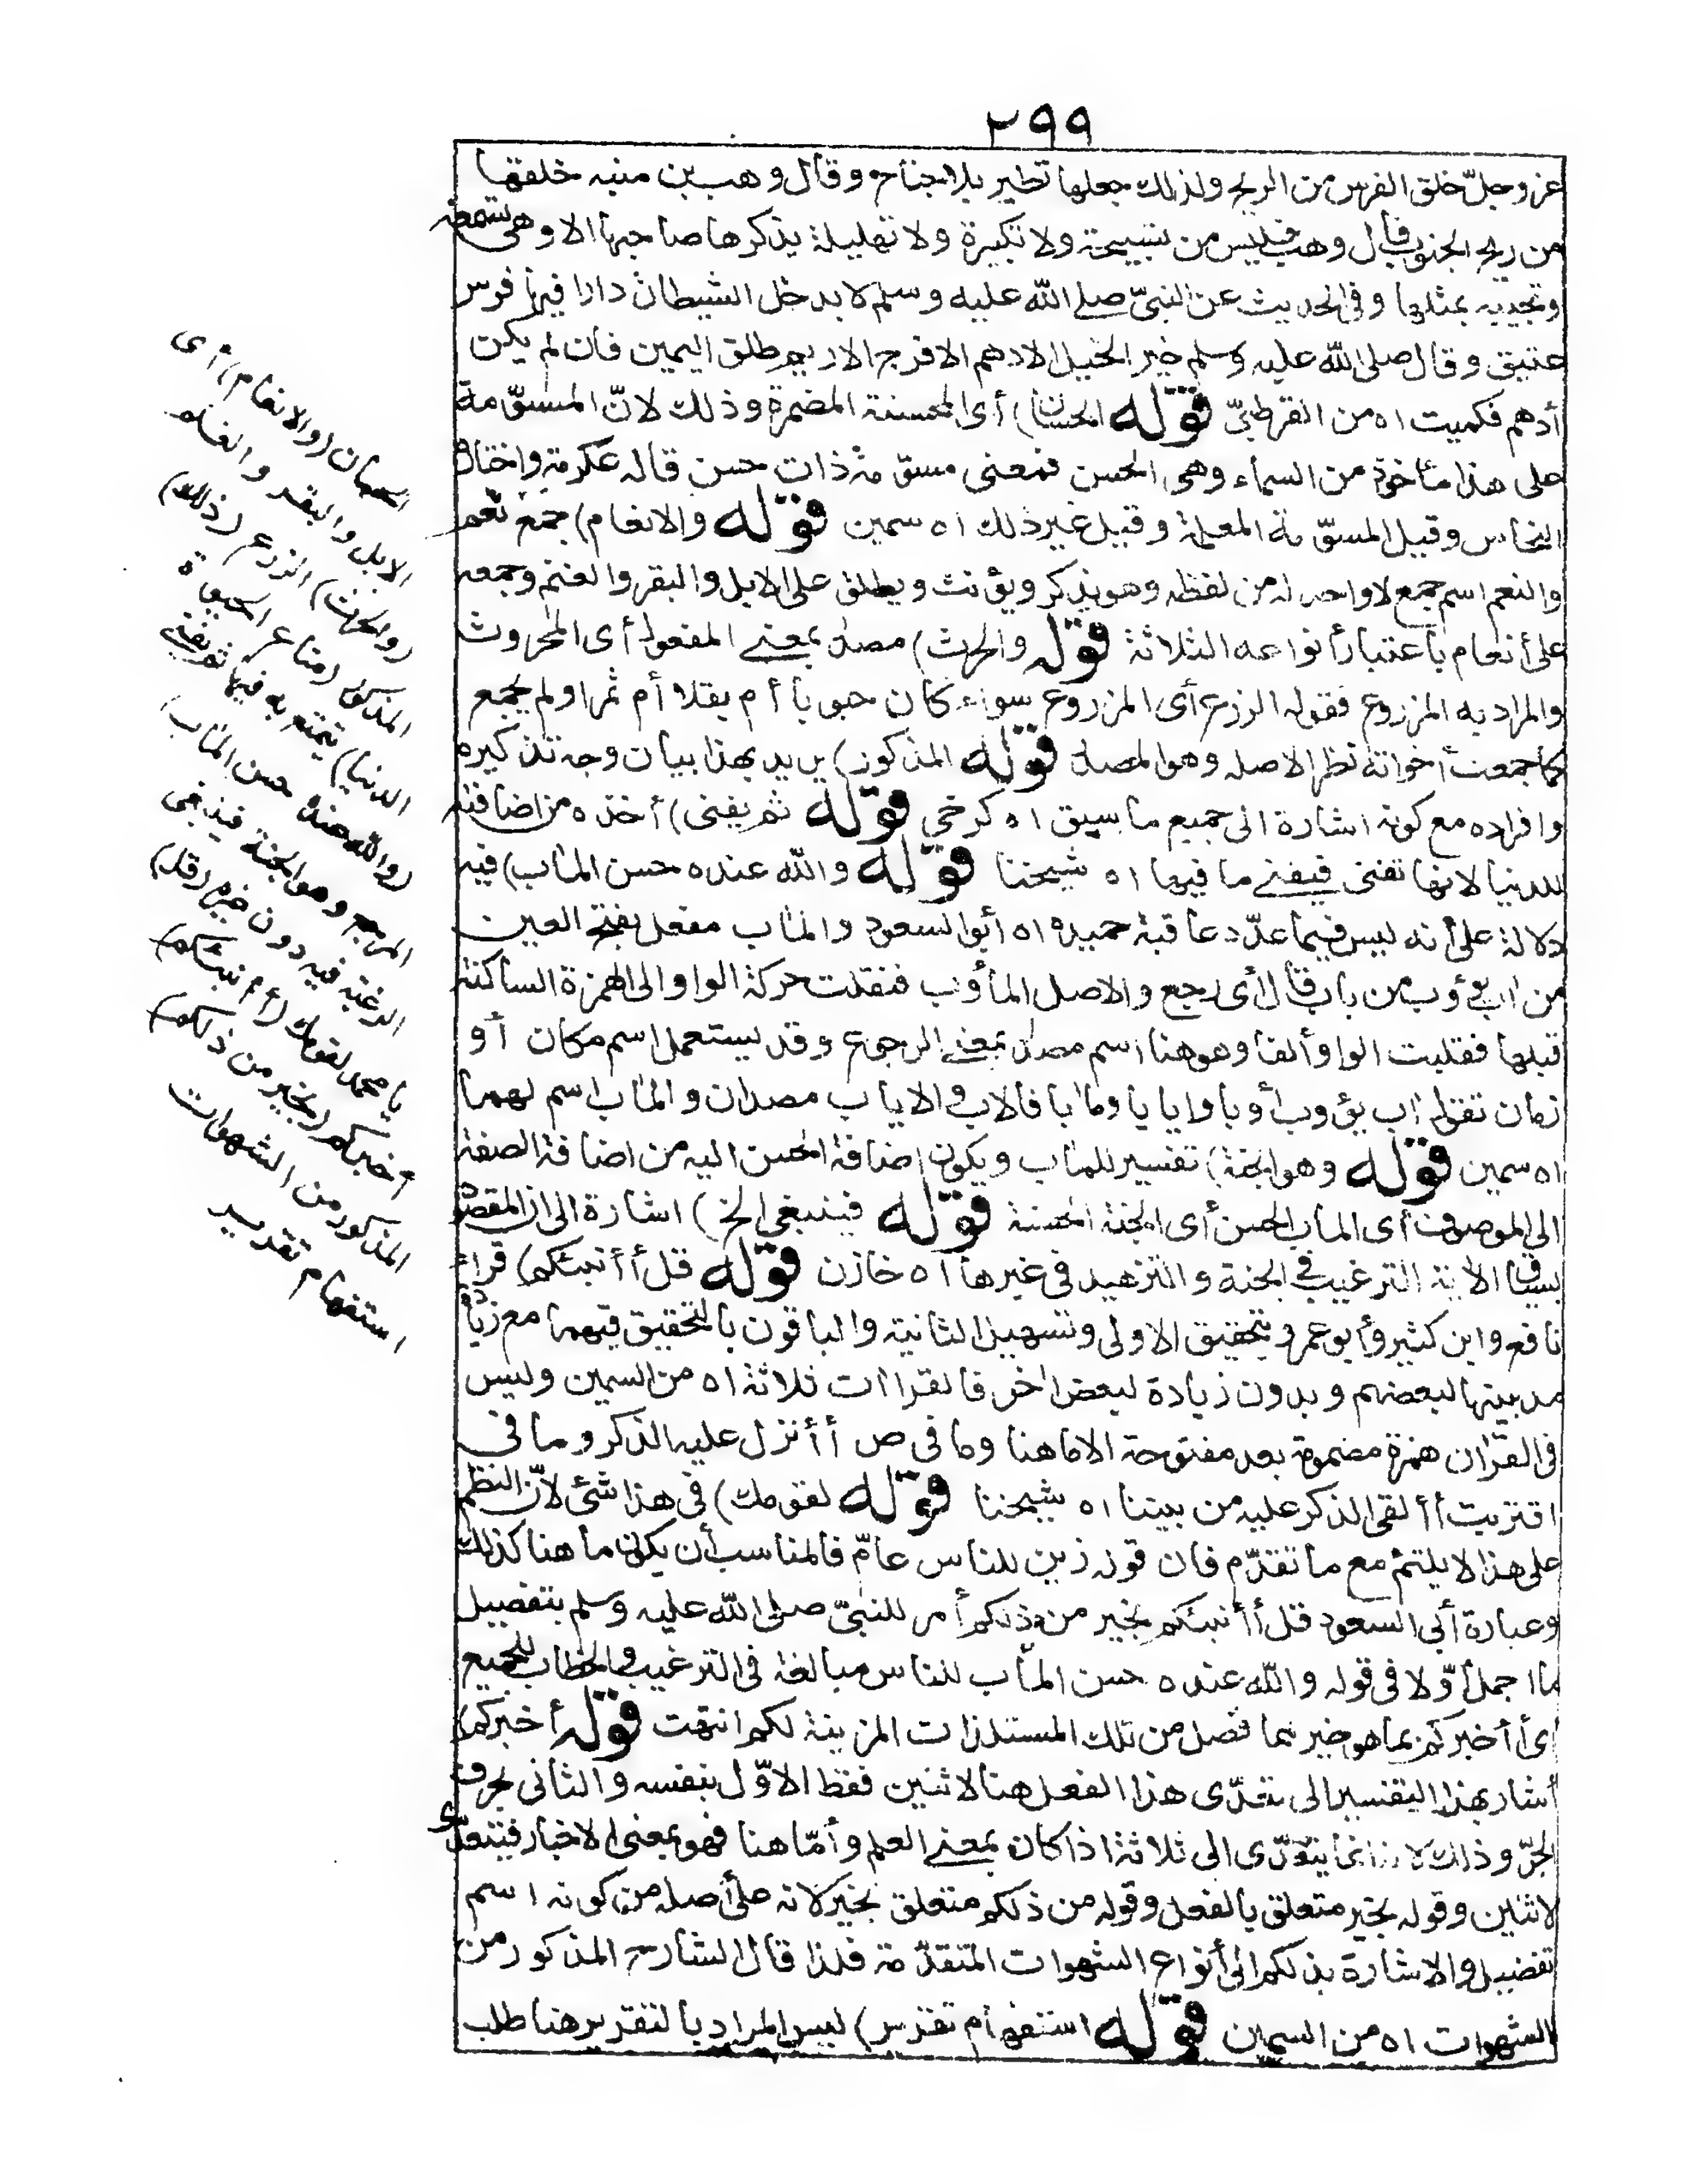 ٢٩٩
عز وجلّ خلق الفرس من الريح ولذلك جعلها تطير بلا جناح وقال وهب بن منبه خلقها
من ريح الجنوب قال وهب فليس من تسبيحة ولا تكبيرة ولا تهليلة يذكرها صاحبها الا وهى تسمعه
وتجيبه بمثلها وفى الحديث عن النبىّ صلى الله عليه وسلم لا يدخل الشيطان دارا فيها فرس
عتيق وقال صلى الله عليه وسلم خير الخيل الادهم الاقرح الارثم طلق اليمين فان لم يكن
أدهم فكميت اه من القرطبىّ قوله الحسان) أى المحسنة المضمرة وذلك لانّ المسوّمة
على هذا مأخوذ من السماء وهى الحسن فمعنى مسوّمة ذات حسن قاله عكرمة واختاره
النحاس وقيل المسوّمة المعلمة وقيل غير ذلك اه سمين قوله والانعام) جمع نعم
والنعم اسم جمع لا واحد له من لفظه وهو يذكر ويؤنث ويطلق على الابل والبقر والغنم وجمعه
على أنعام باعتبار أنواعه الثلاثة قوله والحرث) مصدر بمعنى المفعول أى المحروث
والمراد به المزروع فقوله الزرع أى المزروع سواء كان حبوبا أم بقلا أم ثمرا ولم يجمع
كما جمعت أخواته نظر الاصله وهو المصدر قوله المذكور) يريد بهذا بيان وجه تذكيره
وافراده مع كونه اشارة الى جميع ما سبق اه كرخي قوله ثم يفنى) أخذه من اضافته
للدنيا لانها تفنى فيفنى ما فيها اه شيخنا قوله والله عنده حسن المآب) فيه
دلالة على أنه ليس فيما عدّد عاقبة حميدة اه أبو السعود والمآب مفعل بفتح العين
من آب يؤوب من باب قال أى رجع والاصل المأوب فنقلت حركة الواو الى الهمزة الساكنة
قبلها فقلبت الواو ألفا وهو هنا اسم مصدر بمعنى الرجوع وقد يستعمل اسم مكان أو
زمان تقول آب يؤوب أوبا وايابا ومآبا فالاوب والاياب مصدران والمآب اسم لهما
اه سمين قوله وهو الجنة) تفسير للمآب ويكون اضافة الحسن اليه من اضافة الصفة
الى الموصوف أى المآب الحسن أى الجنة الحسنة قوله فينبغى الخ) اشارة الى ان المقصود
بسياق الآية الترغيب فى الجنة والتزهيد فى غيرها اه خازن قوله قل أأنبئكم) قرأ
نافع وابن كثير وأبو عمرو بتحقيق الاولى وتسهيل الثانية والباقون بالتحقيق فيهما مع زيادة
مد بينهما لبعضهم وبدون زيادة لبعض آخر فالقراآت ثلاثة اه من السمين وليس
فى القرآن همزة مضمومة بعد مفتوحة الا ما هنا وما فى ص أأنزل عليه الذكر وما فى
اقتربت أألقى الذكر عليه من بيننا اه شيخنا قوله لقومك) فى هذا شئ لانّ النظم
على هذا لا يلتئم مع ما تقدّم فان قوله زين للناس عامّ فالمناسب أن يكون ما هنا كذلك
وعبارة أبى السعود قل أأنبئكم بخير من ذلكم أمر للنبىّ صلى الله عليه وسلم بتفصيل
ما اجمل أوّلا فى قوله والله عنده حسن المآب للناس مبالغة فى الترغيب والخطاب للجميع
أى أأخبركم بما هو خير مما فصل من تلك المستلذات المزينة لكم انتهت قوله أخبركم)
أشار بهذا التفسير الى تعدّى هذا الفعل هنا لاثنين فقط الاوّل بنفسه والثانى بحرف
الجرّ وذلك لانه انما يتعدّى الى ثلاثة اذا كان بمعنى العلم وأمّا هنا فهو بمعنى الاخبار فيتعدّى
لاثنين وقوله بخير متعلق بالفعل وقوله من ذلكم متعلق بخير لانه على أصله من كونه اسم
تفضيل والاشارة بذلكم الى أنواع الشهوات المتقدّمة فلذا قال الشارح المذكور من
الشهوات اه من السمين قوله استفهام تقرير) ليس المراد بالتقرير هنا طلب
الحسان (والانعام) أى
الابل والبقر والغنم
(والحرث) الزرع (ذلك)
المذكور (متاع الحيوة
الدنيا) يتمتع به فيها ثم يفنى
(والله عنده حسن المآب)
المرجع وهو الجنة فينبغى
الرغبة فيه دون غيره (قل)
يا محمد لقومك (أأنبئكم)
أخبركم (بخير من ذلكم)
المذكور من الشهوات
استفهام تقرير